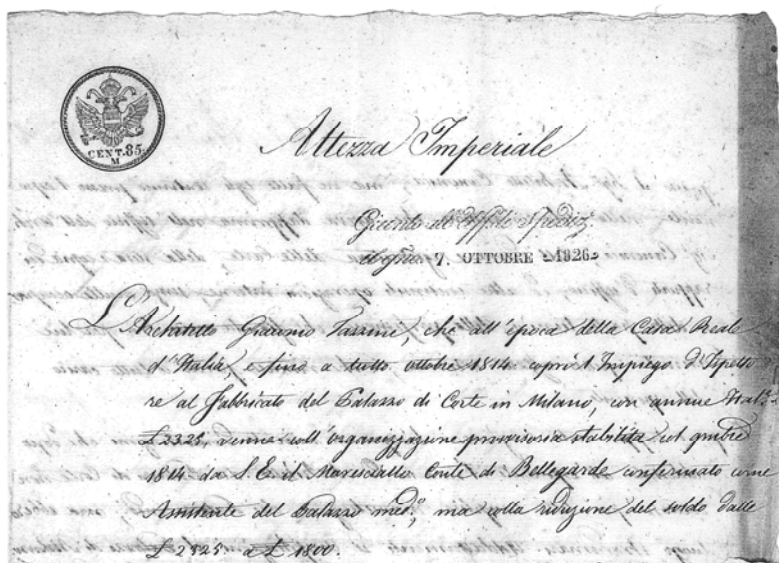 CENT. 85.
M
Attezza Imperiale
Giunto all'Uffº di Spedizº
il giorº 7. OTTOBRE 1826
L'Architetto Giacomo Tazzini, che all'epoca della Casa Reale
d'Italia, e fino a tutto ottobre 1814 coprì l'Impiego d'Ispetto
re al Fabbricato del Palazzo di Corte in Milano, con annue Ital.e
£ 2325, venne coll'organizzazione provvisoria stabilita col
1814 da S. E. il Maresciallo Conte di Bellegarde confirmato come
Assistente del Palazzo med.º, ma colla riduzione del soldo dalle
£ 2325 a £ 1800.